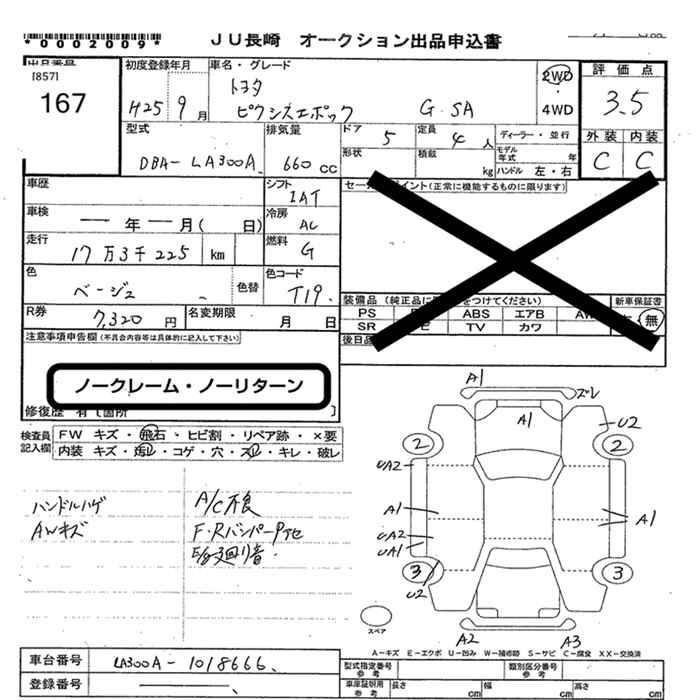 *0002009*
JU長崎 オークション出品申込書
出品番号
[857]
167
初度登録年月
H25 9月
車名・グレード
トヨタ
ピクシスエポック G・SA
2WD
・
4WD
評価点
3.5
外装 内装
C C
型式
DBA- LA300A
排気量
660 cc
ドア 5
定員 4人
ディーラー・並行
形状
積載 kg
モデル年式 年
ハンドル 左・右
車歴
シフト
IAT
セールスポイント(正常に機能するものに限ります)
車検
― 年 ― 月( 日)
冷房
AC
走行
17万3千225 km
燃料
G
色
ベージュ
色替
色コード
T19
R券
7,320 円
名変期限
月 日
装備品(純正品に○をつけてください)
新車保証書
PS ABS エアB AW
SR TV カワ
無
後日品
注意事項申告欄(不具合内容等は具体的に記入して下さい)
ノークレーム・ノーリターン
修復歴 有〔箇所 〕
検査員記入欄
FW キズ・飛石・ヒビ割・リペア跡・×要
内装 キズ・汚レ・コゲ・穴・スレ・キレ・破レ
ハンドルハゲ
AWキズ
A/C不良
F・Rバンパー
E/g廻り音
A1
ズレ
A1
U2
2 2
UA2
A1
A1
UA2
UA1
3 3
U2
スペア
A2 A3
A-キズ E-エクボ U-凹み W-補修跡 S-サビ C-腐食 XX-交換済
車台番号
LA300A-1018666
登録番号
型式指定番号
参考
類別区分番号
参考
車庫証明用
参考
長さ cm
幅 cm
高さ cm